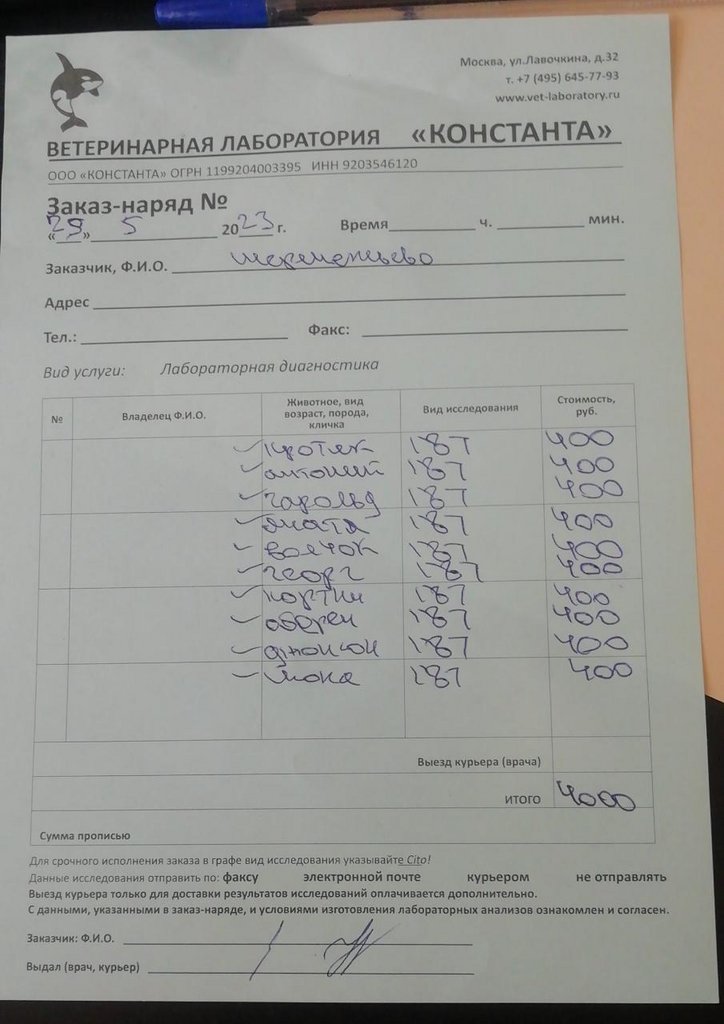 Москва, ул.Лавочкина, д.32
т. +7 (495) 645-77-93
www.vet-laboratory.ru
ВЕТЕРИНАРНАЯ ЛАБОРАТОРИЯ «КОНСТАНТА»
ООО «КОНСТАНТА» ОГРН 1199204003395 ИНН 9203546120
Заказ-наряд №
«29» 5 2023 г. Время ч. мин.
Заказчик, Ф.И.О. Шереметьево
Адрес
Тел.: Факс:
Вид услуги: Лабораторная диагностика
№ Владелец Ф.И.О. Животное, вид возраст, порода, кличка Вид исследования Стоимость, руб.
187 400
антоний 187 400
гарольд 187 400
187 400
волчок 187 400
георг 187 400
187 400
обрен 187 400
джонсон 187 400
мока 187 400
Выезд курьера (врача)
ИТОГО 4000
Сумма прописью
Для срочного исполнения заказа в графе вид исследования указывайте Cito!
Данные исследования отправить по: факсу электронной почте курьером не отправлять
Выезд курьера только для доставки результатов исследований оплачивается дополнительно.
С данными, указанными в заказ-наряде, и условиями изготовления лабораторных анализов ознакомлен и согласен.
Заказчик: Ф.И.О.
Выдал (врач, курьер)